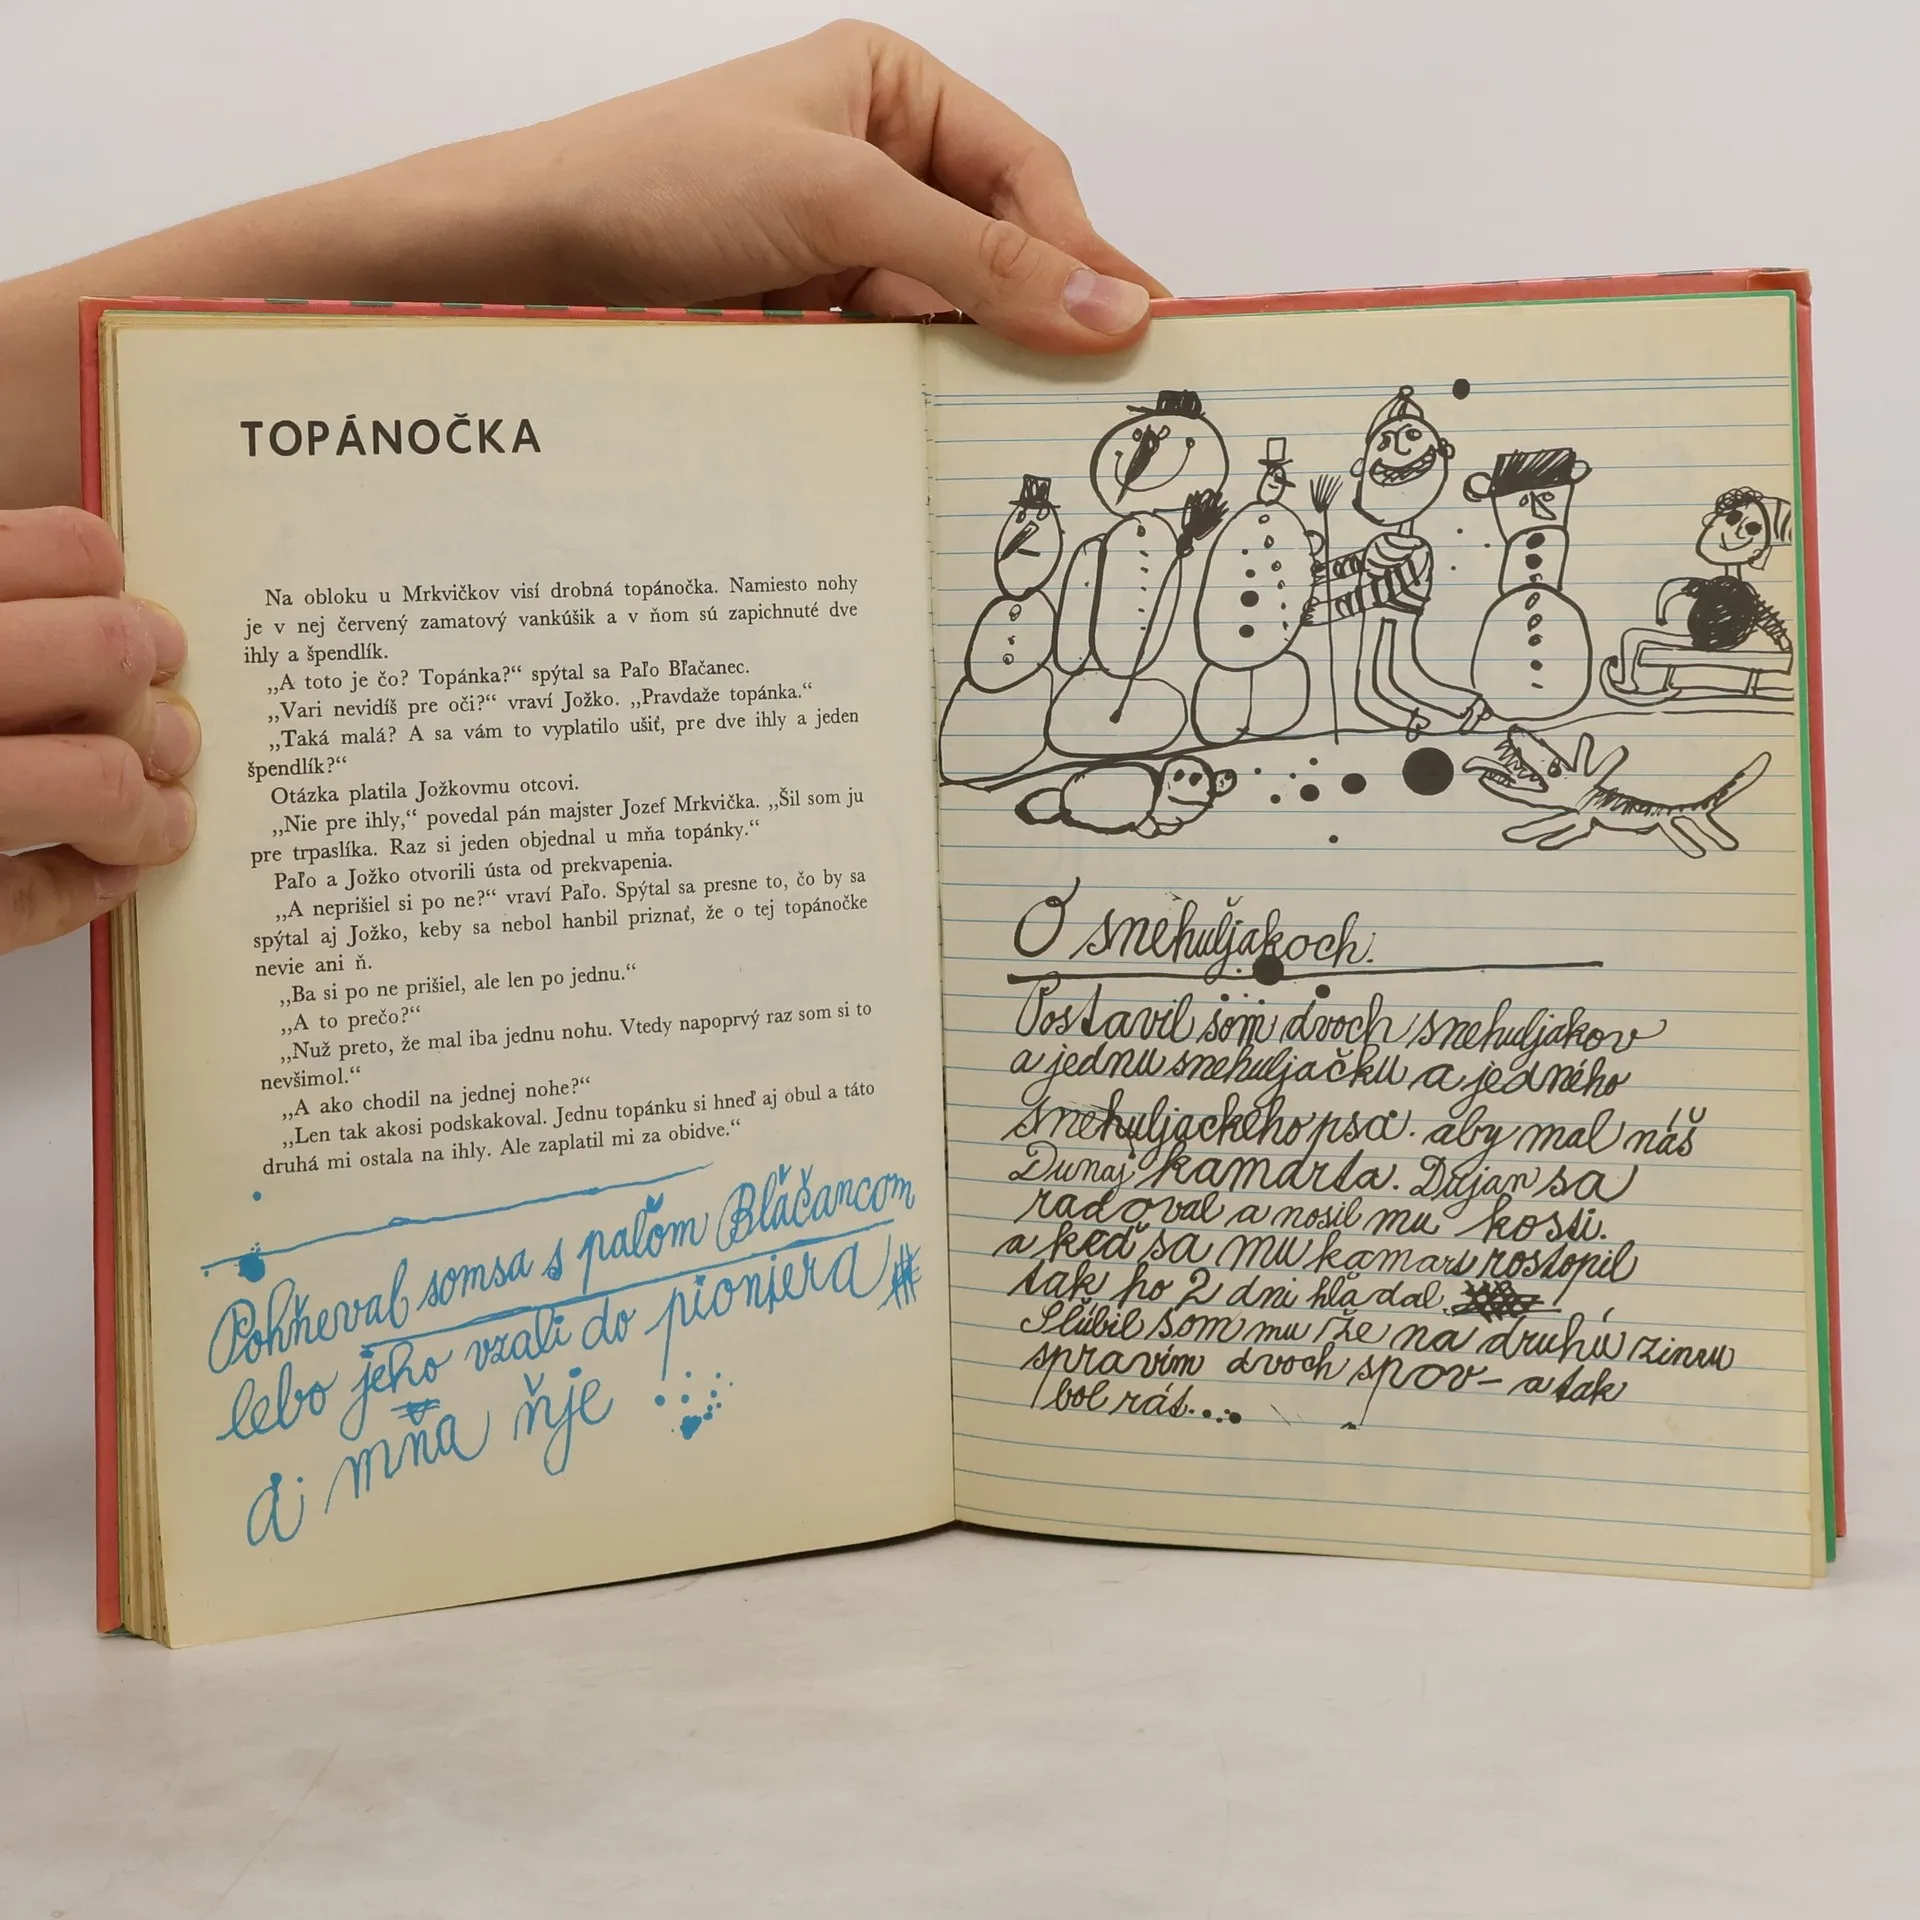 TOPÁNOČKA
Na obloku u Mrkvičkov visí drobná topánočka. Namiesto nohy
je v nej červený zamatový vankúšik a v ňom sú zapichnuté dve
ihly a špendlík.
„A toto je čo? Topánka?“ spýtal sa Paľo Bľačanec.
„Vari nevidíš pre oči?“ vraví Jožko. „Pravdaže topánka.“
„Taká malá? A sa vám to vyplatilo ušiť, pre dve ihly a jeden
špendlík?“
Otázka platila Jožkovmu otcovi.
„Nie pre ihly,“ povedal pán majster Jozef Mrkvička. „Šil som ju
pre trpaslíka. Raz si jeden objednal u mňa topánky.“
Paľo a Jožko otvorili ústa od prekvapenia.
„A neprišiel si po ne?“ vraví Paľo. Spýtal sa presne to, čo by sa
spýtal aj Jožko, keby sa nebol hanbil priznať, že o tej topánočke
nevie ani ň.
„Ba si po ne prišiel, ale len po jednu.“
„A to prečo?“
„Nuž preto, že mal iba jednu nohu. Vtedy napoprvý raz som si to
nevšimol.“
„A ako chodil na jednej nohe?“
„Len tak akosi podskakoval. Jednu topánku si hneď aj obul a táto
druhá mi ostala na ihly. Ale zaplatil mi za obidve.“
Pohňeval somsa s paľom Bľáčancom
lebo jeho vzali do pionjera
a mňa ňje
O snehuljakoch.
Postavil som dvoch snehuljakov
a jednu snehuljačku a jedného
snehuljackeho psa. aby mal náš
Dunaj kamarta. Dujan sa
radoval a nosil mu kosti.
a keď sa mu kamart rostopil
tak ho 2 dni hľadal.
Slúbil som mu že na druhú zimu
spravím dvoch spov- a tak
bol rát...